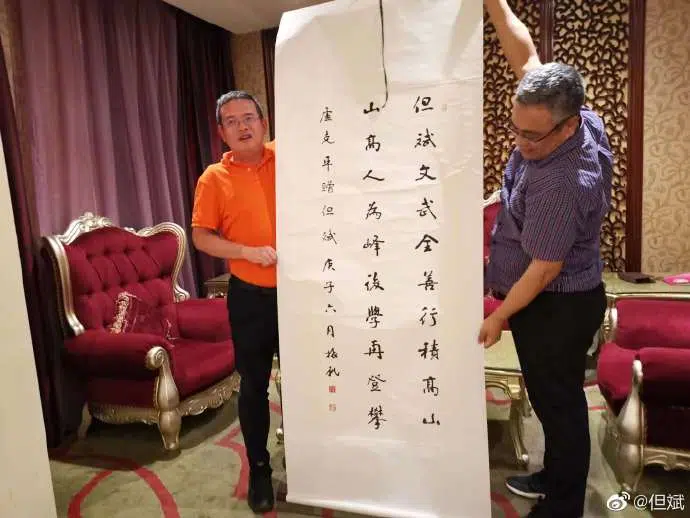 但斌文武全善行積高山
山高人為峰後學再登攀
盧克平贈但斌庚子六月振礼
@但斌